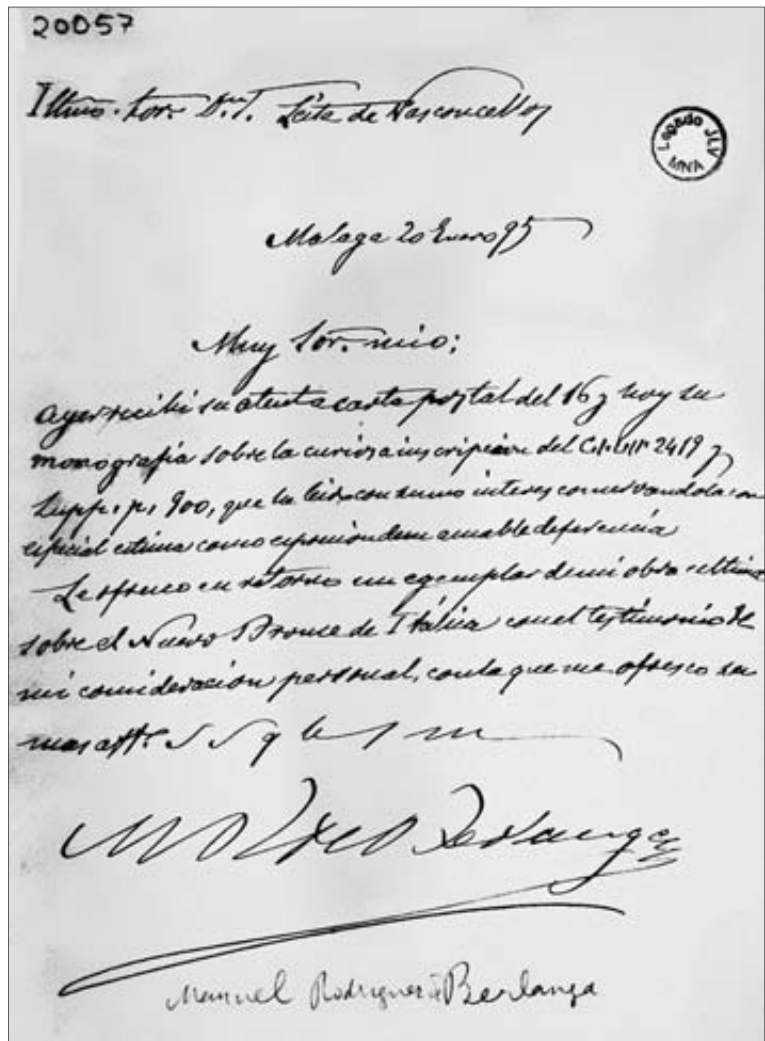 20057
Illmo. Sor. Dn. J. Leite de Vasconcellos
Legado JLV
MNA
Malaga 20 Enero 95
Muy Sor. mio:
Ayer recibi su atenta carta postal del 16 y hoy su
monografia sobre la curiosa inscripcion del C.I.L. II 2419 y
Supp. p. 900, que he leido con sumo interes conservandola con
especial estima como expresion de su amable deferencia
Le ofresco en retorno un egemplar de mi obra ultima
sobre el Nuevo Bronce de Itálica con el testimonio de
mi consideracion personal, con la que me ofresco su
mas attº. S S q b s m
M R de Berlanga
Manuel Rodriguez de Berlanga